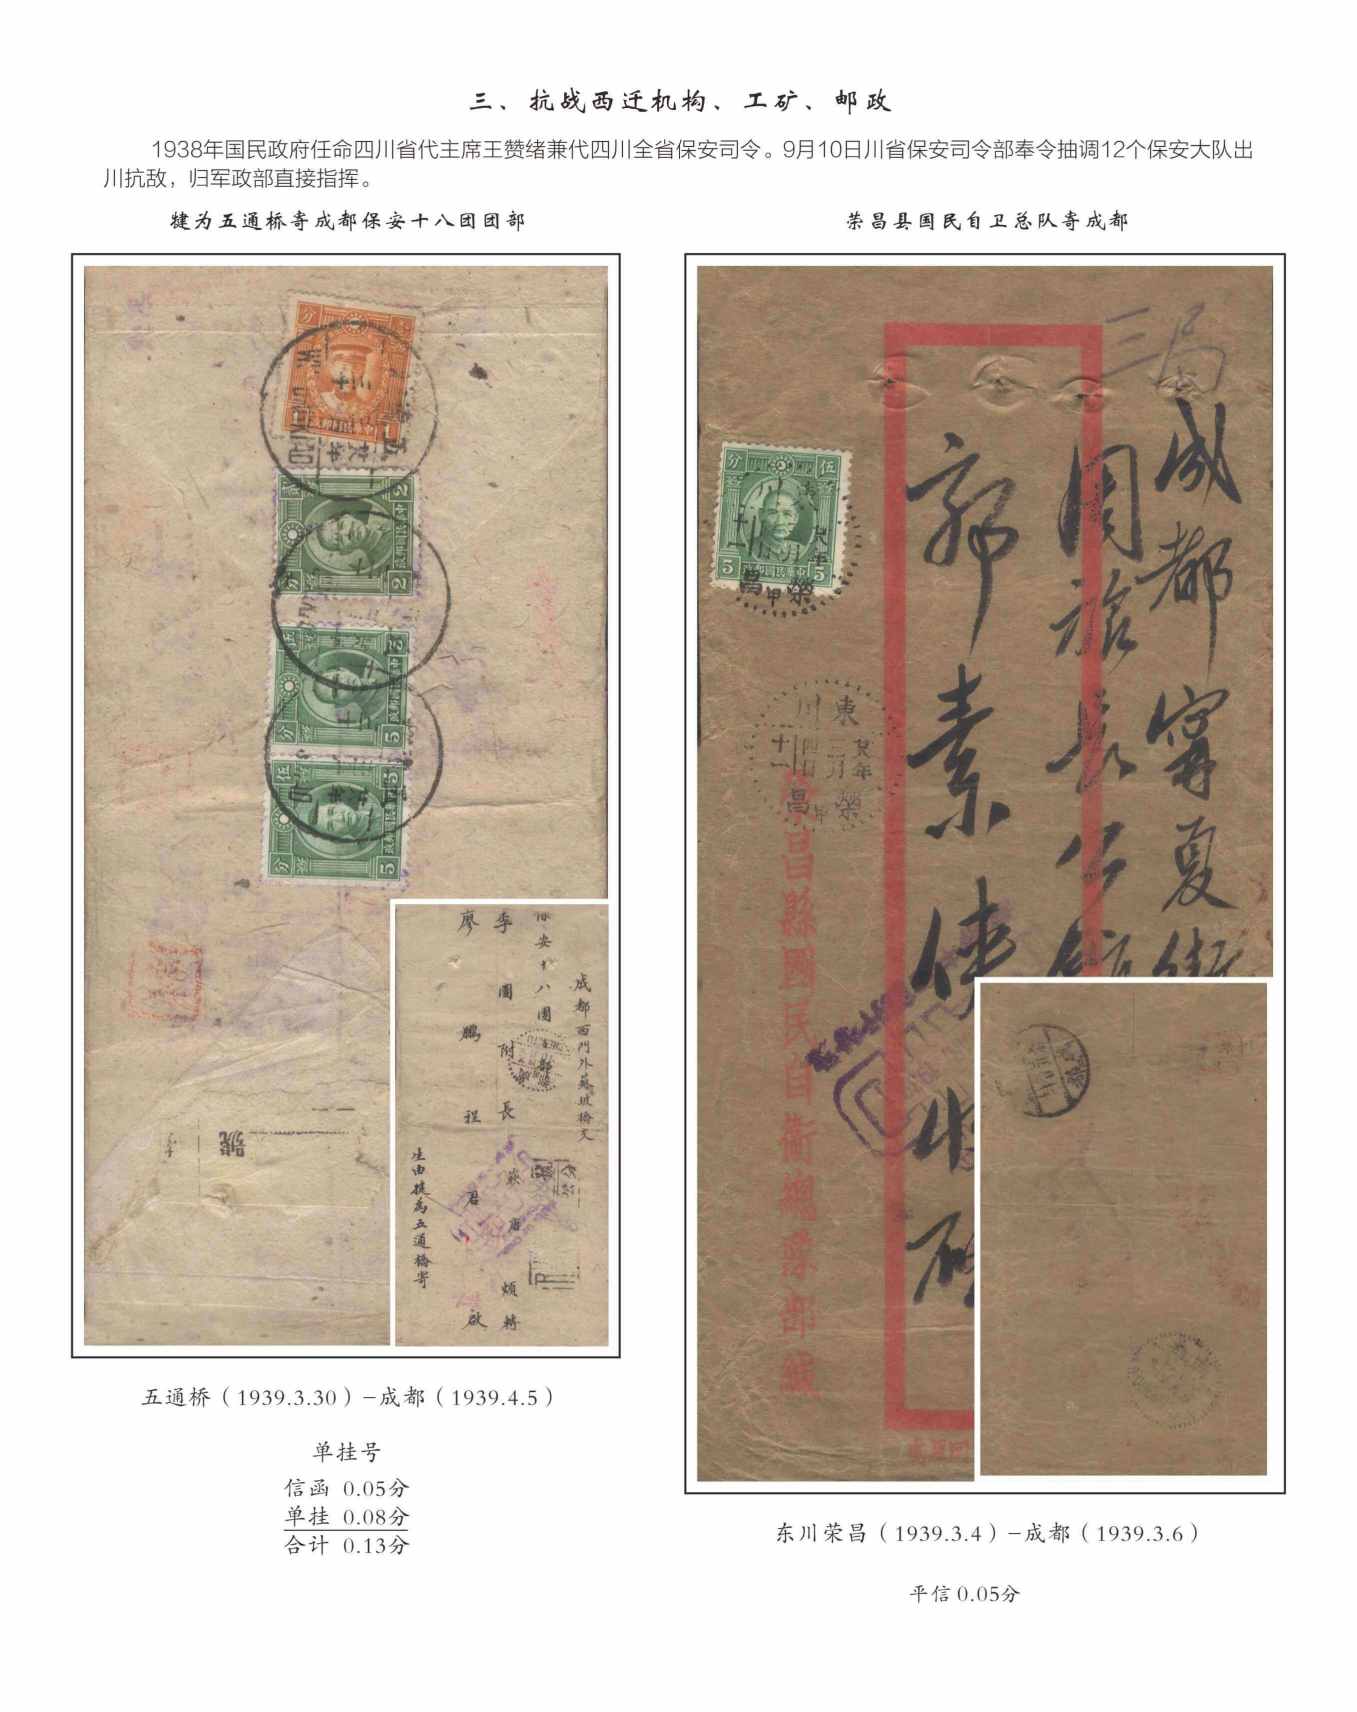 三、抗战西迁机构、工矿、邮政
1938年国民政府任命四川省代主席王赞绪兼代四川全省保安司令。9月10日川省保安司令部奉令抽调12个保安大队出
川抗敌，归军政部直接指挥。
犍为五通桥寄成都保安十八团团部
成都西門外蘇坡橋交
保安十八團
李團附長
煩轉
廖鵬程君啟
生由揵為五通橋寄
號
五通桥（1939.3.30）–成都（1939.4.5）
单挂号
信函 0.05分
单挂 0.08分
合计 0.13分
荣昌县国民自卫总队寄成都
三局
成都甯夏街
郭素
伍
分
5
5
東川
榮昌
榮昌縣國民自衛總隊部緘
成都
东川荣昌（1939.3.4）–成都（1939.3.6）
平信 0.05分